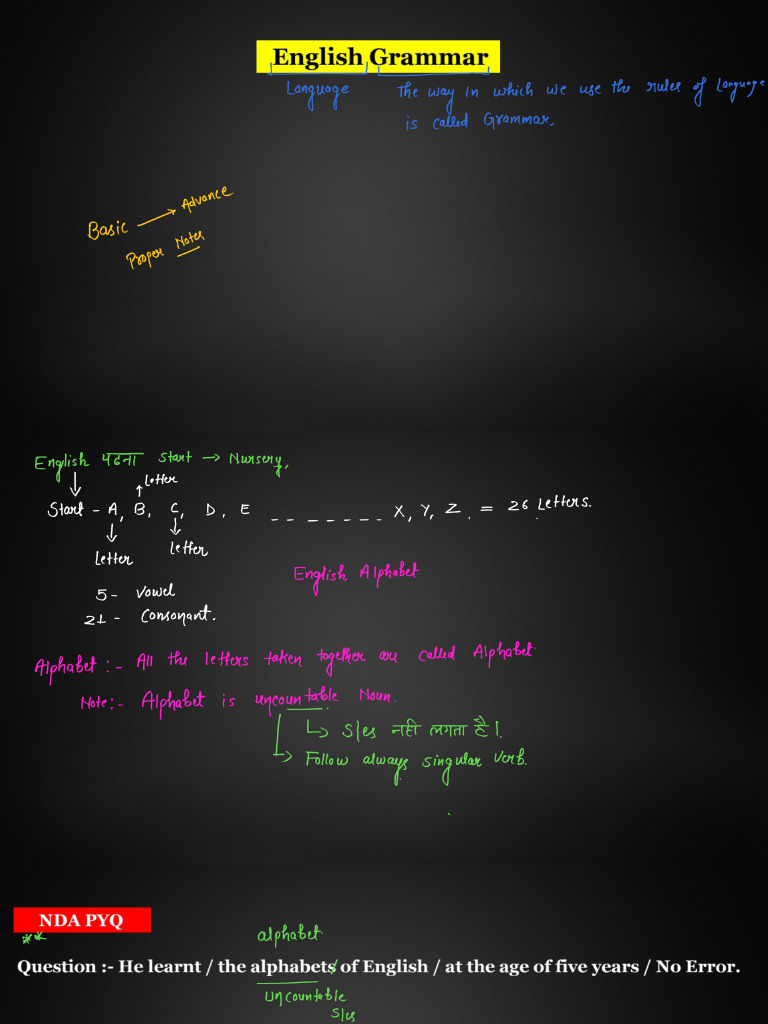 English Grammar
Language the way in which we use the rules of Language
is called Grammar.
Basic → Advance
Proper Notes
English पढना Start → Nursery.
Letter
Start - A, B, C, D, E - - - - - - - X, Y, Z. = 26 Letters.
Letter Letter
English Alphabet
5 - Vowel
21 - Consonant.
Alphabet :- All the letters taken together are called Alphabet
Note:- Alphabet is uncountable Noun.
↳ S/es नही लगता है।
↳ Follow always singular verb.
NDA PYQ
** alphabet
Question :- He learnt / the alphabets of English / at the age of five years / No Error.
uncountable
S/es